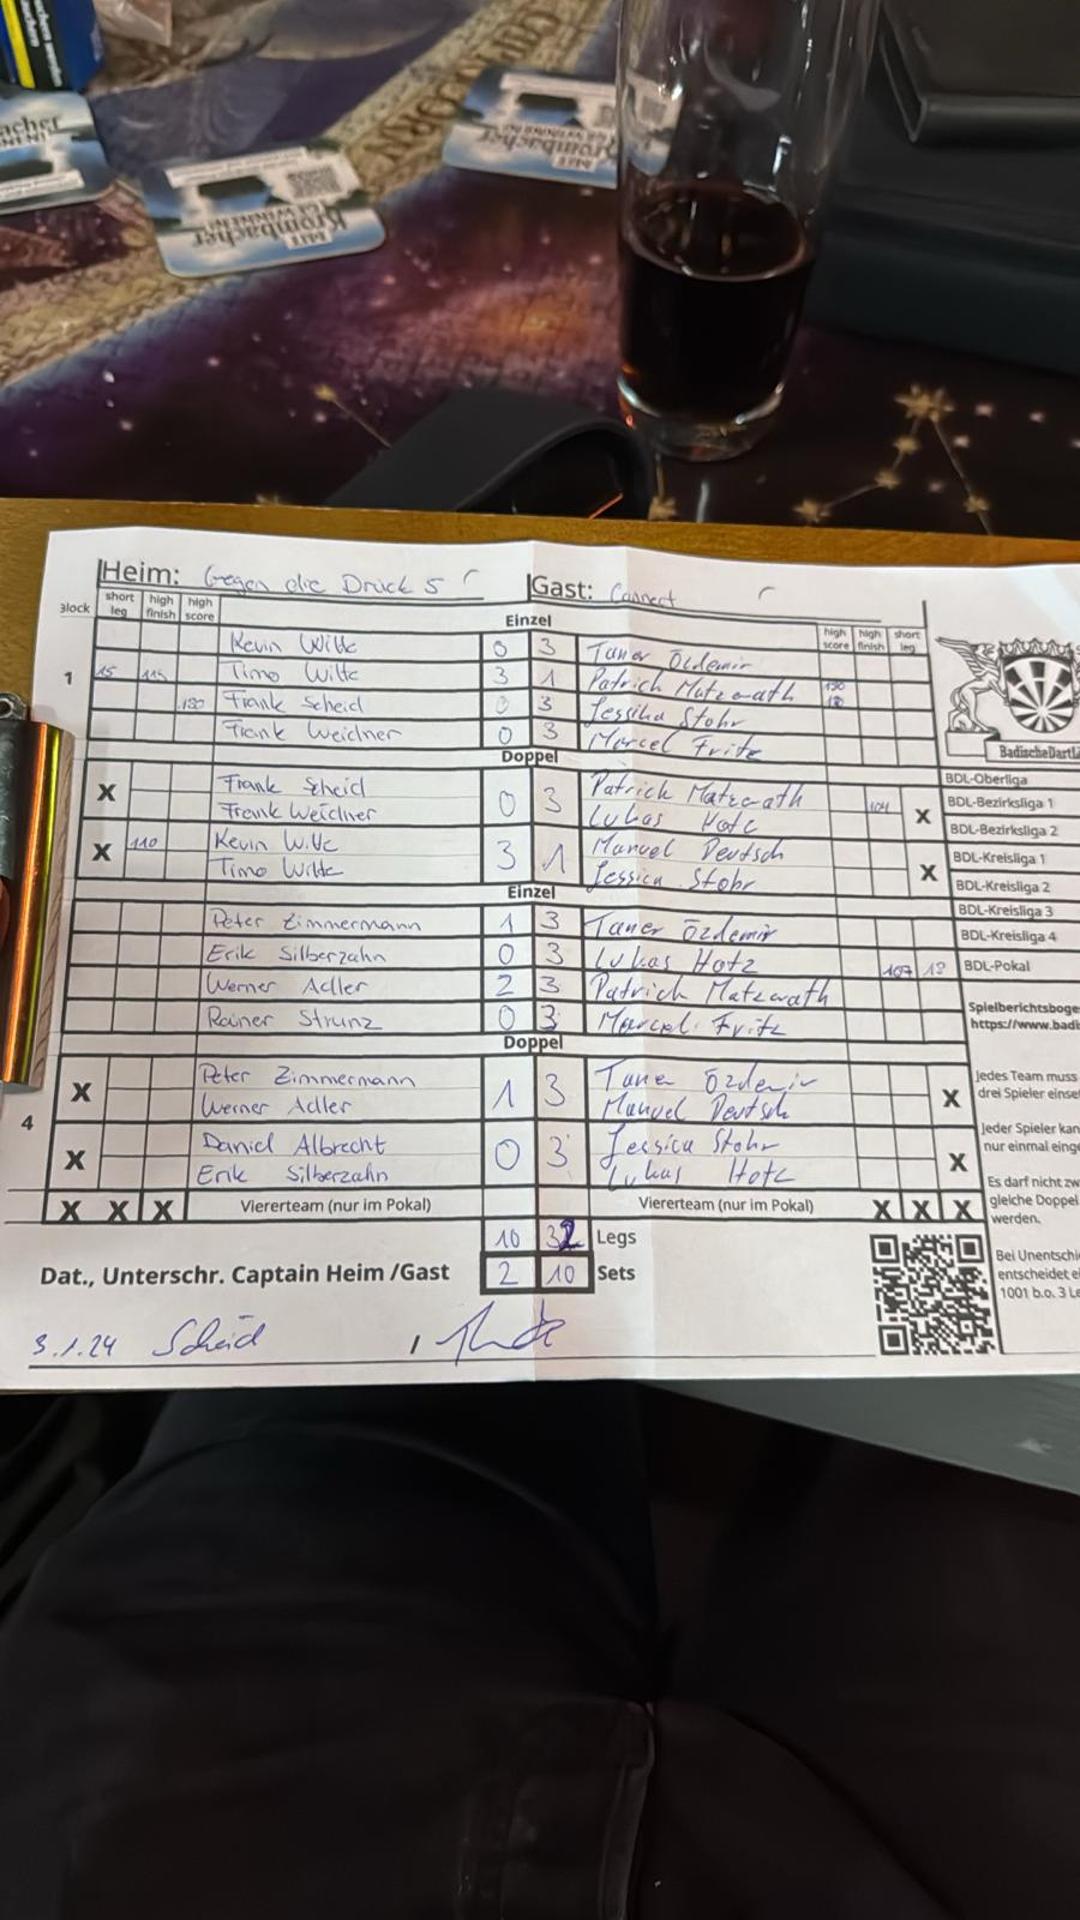 Krombacher
MIT
GEWINNEN!
Heim: Gegen die Druck 5 Gast: Connect
Block short leg high finish high score Einzel high score high finish short leg
Kevin Wilte 0 3 Taner Özdemir
1 15 115 Timo Wilte 3 1 Patrich Matzerath 180 180
180 Frank Scheid 0 3 Jessika Stohr
Frank Weidner 0 3 Marcel Fritz
Doppel
BadischeDartLi
X Frank Scheid 0 3 Patrick Matzerath 104 X
Frank Weidner Lukas Hotz
X 110 Kevin Wilte 3 1 Manuel Deutsch X
Timo Wilte Jessica Stohr
Einzel
Peter Zimmermann 1 3 Taner Özdemir
Erik Silberzahn 0 3 Lukas Hotz 107 18
Werner Adler 2 3 Patrich Matzerath
Rainer Strunz 0 3 Marcel Fritz
Doppel
X Peter Zimmermann 1 3 Taner Özdemir X
Werner Adler Manuel Deutsch
4
X Daniel Albrecht 0 3 Jessica Stohr X
Erik Silberzahn Lukas Hotz
X X X Viererteam (nur im Pokal) Viererteam (nur im Pokal) X X X
10 32 Legs
Dat., Unterschr. Captain Heim /Gast 2 10 Sets
3.1.24 Scheid /
BDL-Oberliga
BDL-Bezirksliga 1
BDL-Bezirksliga 2
BDL-Kreisliga 1
BDL-Kreisliga 2
BDL-Kreisliga 3
BDL-Kreisliga 4
BDL-Pokal
Spielberichtsboge
https://www.badi
Jedes Team muss
drei Spieler einse
Jeder Spieler kan
nur einmal einge
Es darf nicht zw
gleiche Doppel
werden.
Bei Unentschi
entscheidet ei
1001 b.o. 3 Le